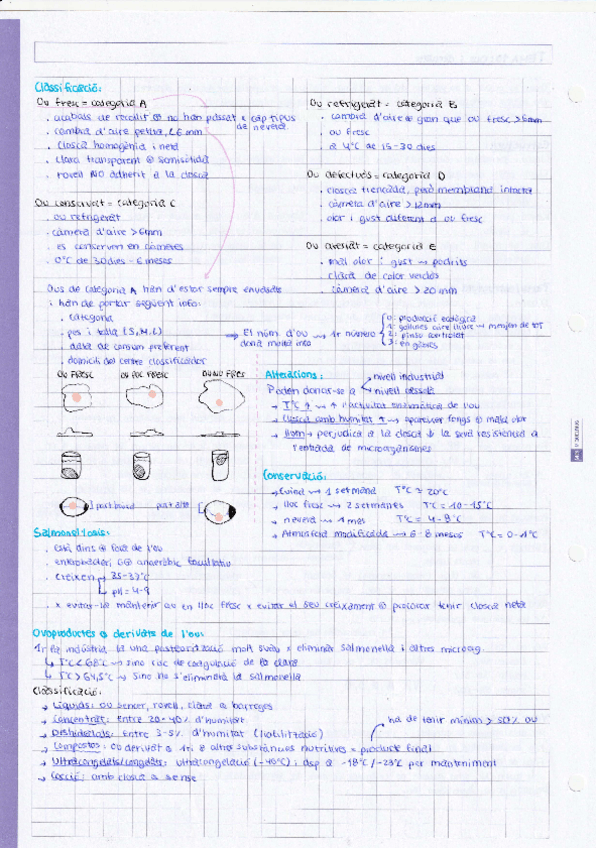 Classificació:
Ou fresc = categoria A
· acabats de recollir o no han passat x cap tipus de nevera
· cambra d'aire petita, <6 mm
· closca homogènia i neta
· clara transparent o semisòlida
· rovell NO adherit a la closca
Ou conservat = categoria C
· ou refrigerat
· càmera d'aire >6mm
· es conserven en càmeres
· 0°C de 30 dies - 6 mesos
Ou refrigerat = categoria B
· cambra d'aire gran que ou fresc >6mm
· ou fresc
· a 4°C de 15-30 dies
Ou defectuós = categoria D
· closca trencada, però membrana intacta
· càmera d'aire >12mm
· olor i gust diferent d ou fresc
Ou avariat = categoria E
· mal olor i gust → podrits
· clara de color verdós
· càmera d'aire > 20 mm
Ous de categoria A han d'estar sempre envasats
i han de portar següent info:
· categoria
· pes i talla (S, M, L)
· data de consum preferent
· domicili del centre classificador
→ El núm. d'ou dona molta info → 1r número
0: producció ecològica
1: gallines aire lliure → menjen de tot
2: pinso controlat
3: en gàbies
OU FRESC
OU POC FRESC
OU NO FRES
post bullit
Alteracions:
Poden donar-se a
nivell industrial
nivell
→ T°C ↑ → ↑ l'activitat enzimàtica de l'ou
→ Closca amb humitat ↑ → aparèixer fongs o mala olor
→ perjudica a la closca ↓ la seva resistència a
l'entrada de microorganismes
Conservació:
→ Cuina → 1 setmana T°C ≈ 20°C
→ lloc fresc → 2 setmanes T°C = 10-15°C
→ nevera → 1 mes T°C = 4-8°C
→ Atmosfera modificada → 6-8 mesos T°C = 0-1°C
Salmonel·losis:
· està dins o fora de l'ou
· enterobacteri, anaeròbic facultatiu
· Creixen → 35-37°C
pH = 4-9
· x evitar-la mantenir ou en lloc fresc x evitar el seu creixament o procurar tenir closca neta
Ovoproductes o derivats de l'ou:
1r la indústria fa una pasteurització molt suau x eliminar salmonella i altres microorg.
↳ T°C < 68°C → sino risc de coagulació de la clara
↳ T°C > 64,5°C → sino no s'eliminarà la salmonella
Classificació:
→ Líquids: ou sencer, rovell, clara o barreges
→ Concentrat: entre 20-40% d'humitat
→ Deshidratats: entre 3-5% d'humitat (liofilització)
→ Compostos: ou derivat o 1r i altres substàncies nutritives = producte final
ha de tenir mínim > 50% ou
→ Ultracongelats/congelats: ultracongelació (-40°C) i dsp a -18°C/-23°C per manteniment
→ Cocció: amb closca o sense